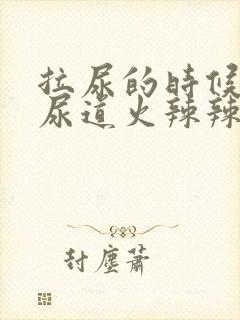 拉尿的時候
尿道火辣辣
封塵蕭